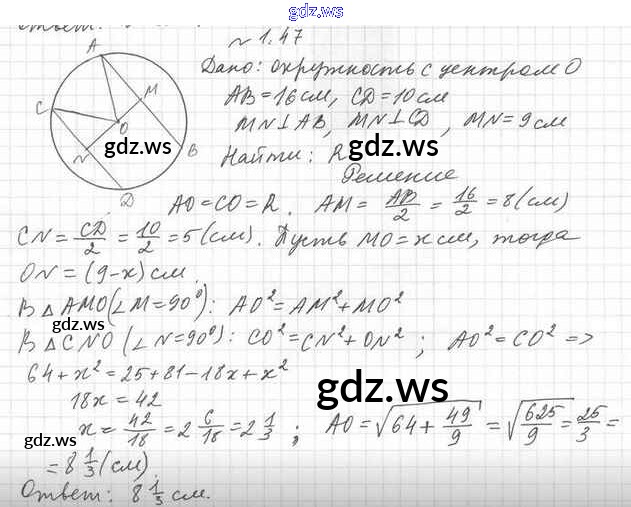 gdz.ws
Ответ:
№ 1.47
Дано: окружность с центром О
AB=16см, CD=10см
MN⊥AB, MN⊥CD, MN=9см
Найти: R
Решение
A
M
C
O
N
B
D
gdz.ws
gdz.ws
AO=CO=R. AM= AB/2 = 16/2 =8(см)
CN= CD/2 = 10/2 =5(см). Пусть MO=x см, тогда
ON=(9-x)см.
В △AMO(∠M=90°): AO²=AM²+MO²
gdz.ws
В △CNO (∠N=90°): CO²=CN²+ON²; AO²=CO² =>
64+x²=25+81-18x+x²
gdz.ws
18x=42
x= 42/18 =2 6/18 =2 1/3; AO=√(64+ 49/9) =√(625/9) = 25/3 =
gdz.ws
=8 1/3 (см).
Ответ: 8 1/3 см.